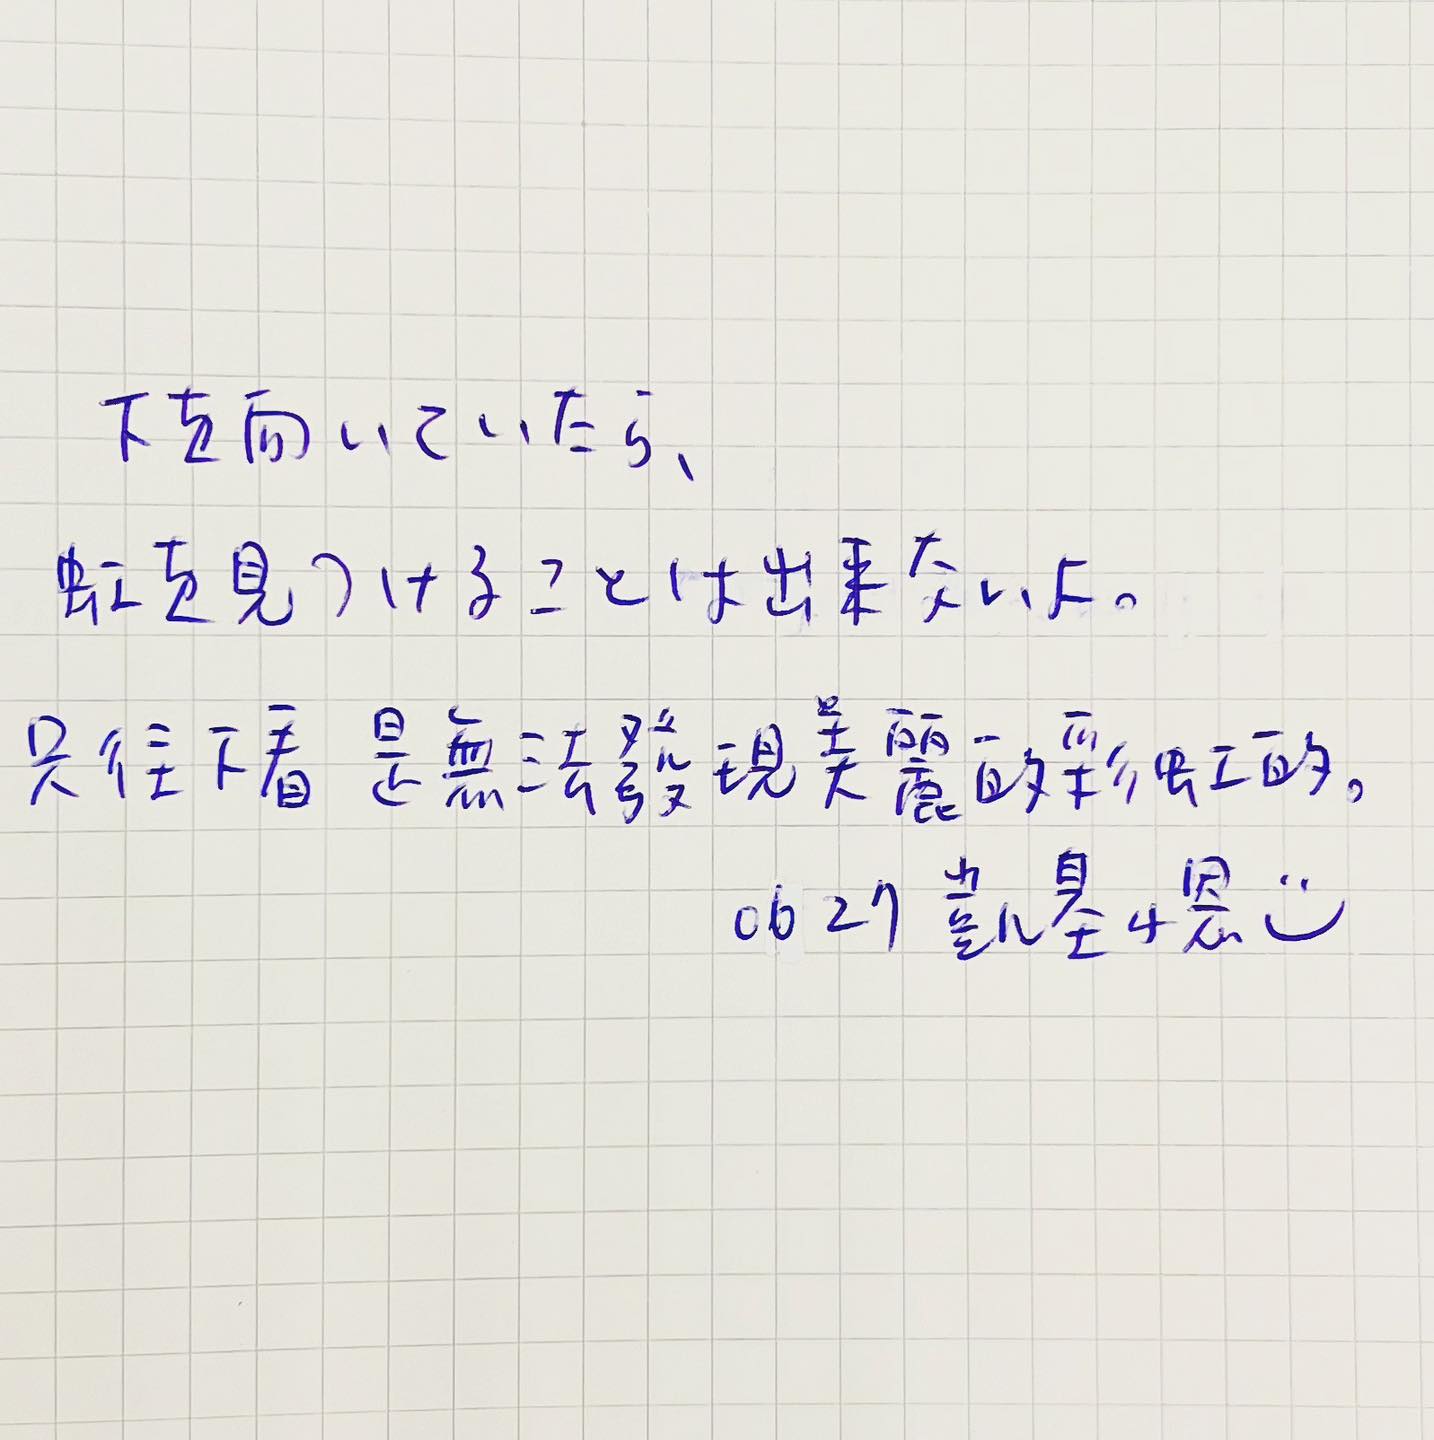 下を向いていたら、
虹を見つけることは出来ないよ。
只往下看是無法發現美麗的彩虹的。
0627 凱 恩